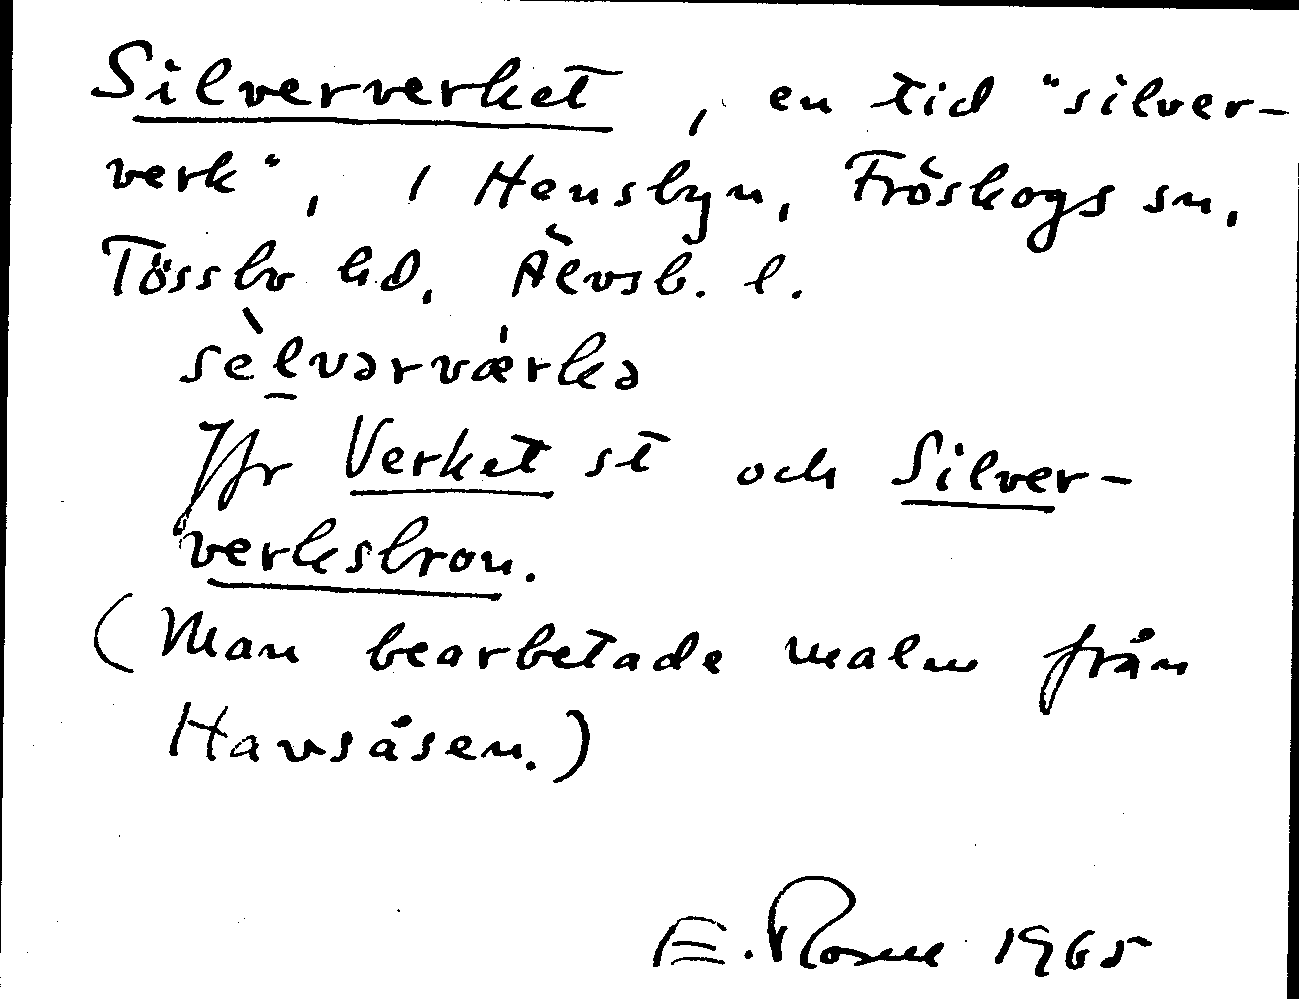 Silververket, en tid "silver-
verk", i Hensbyn, Fröskogs sn,
Tössbo hd, Älvsb. l.
sèlvərvǽrkə
Jfr Verket st och Silver-
verksbron.
(Man bearbetade malm från
Havsåsen.)
E. Rosell 1965